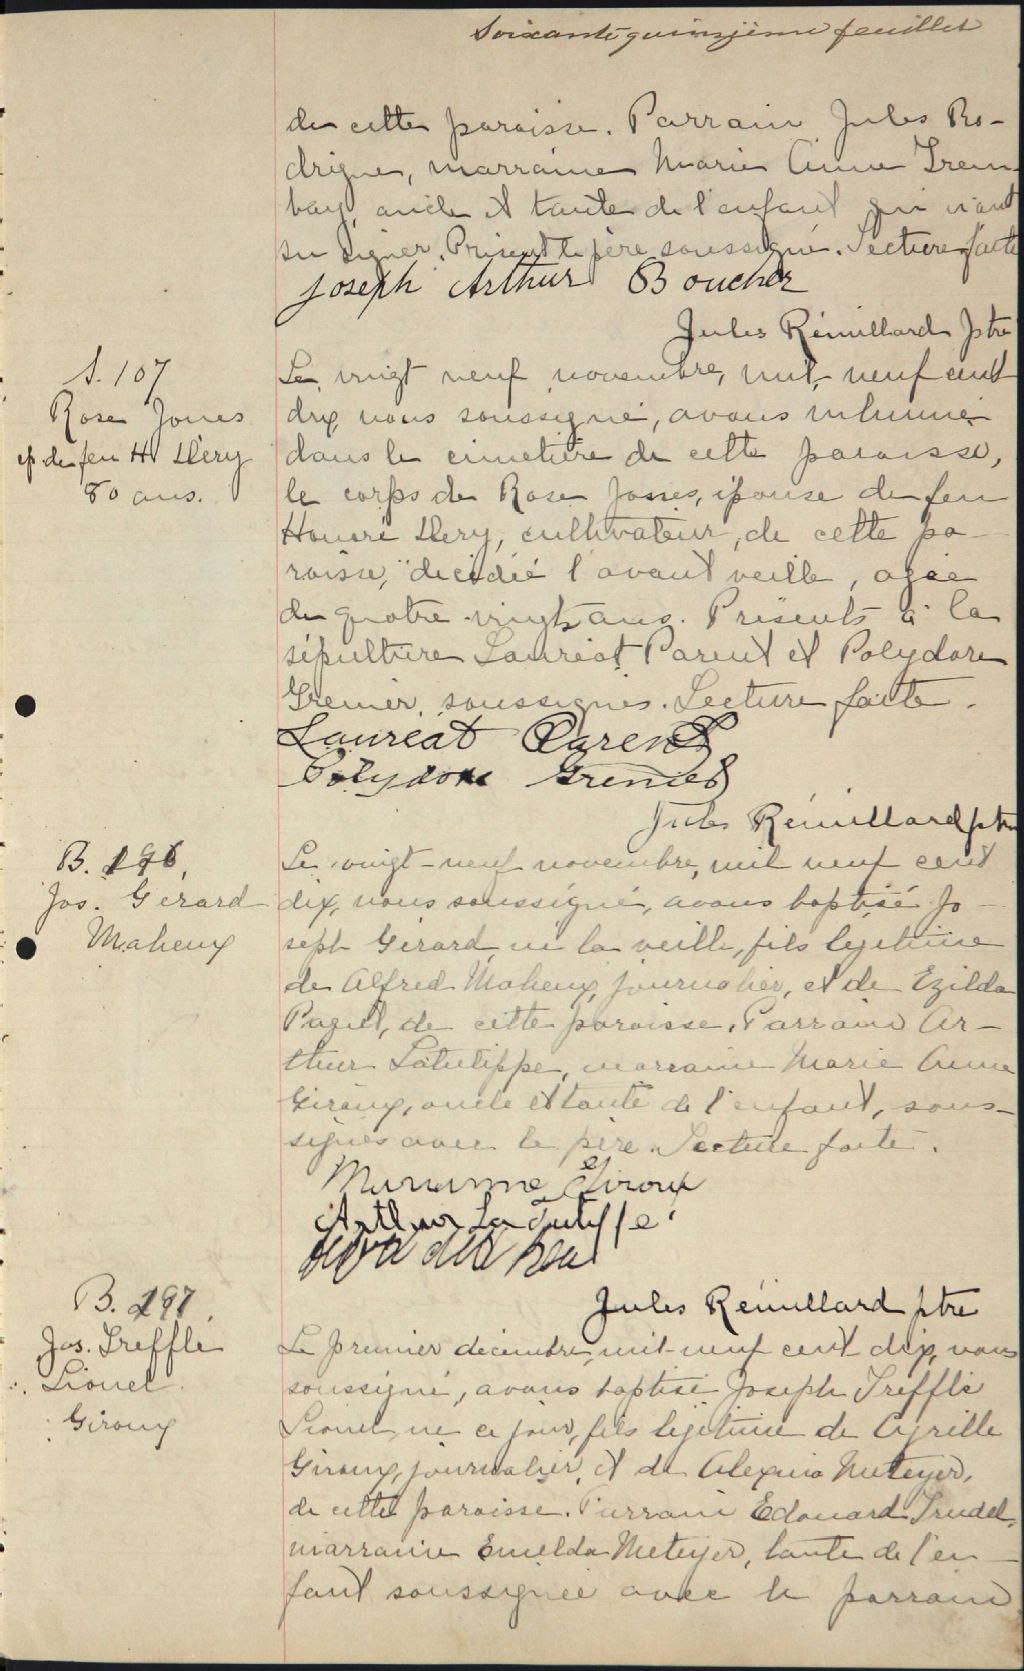 Soixante quinzième feuillet
de cette paroisse. Parrain Jules Ro-
drigue, marraine Marie Anne Trem-
bay, oncle et tante de l'enfant qui n'ont
su signer. Présent le père soussigné. Lecture faite
Joseph Arthur Boucher
Jules Rémillard ptre
S. 107
Rose Jones
ép. de feu H. Déry
80 ans.
Le vingt neuf novembre, mil neuf cent
dix, nous soussigné, avons inhumé
dans le cimetière de cette paroisse,
le corps de Rose Jones, épouse de feu
Honoré Déry, cultivateur, de cette pa-
roisse, décédée l'avant veille, agée
de quatre-vingts ans. Présents à la
sépulture Lauréat Parent et Polydore
Grenier, soussignés. Lecture faite.
Lauréat Parent
Polydore Grenier
Jules Rémillard ptre
B. 196
Jos. Gérard
Maheux
Le vingt-neuf novembre, mil neuf cent
dix, nous soussigné, avons baptisé Jo-
seph Gérard, né la veille, fils légitime
de Alfred Maheux, journalier, et de Ezilda
Paquet, de cette paroisse. Parrain Ar-
thur Latulippe, marraine Marie Anne
Giroux, oncle et tante de l'enfant, sous-
signés avec le père. Lecture faite.
Giroux
Arthur Latulippe
Jules Rémillard ptre
B. 197
Jos. Trefflé
Lionel
Giroux
Le premier décembre, mil-neuf cent dix, nous
soussigné, avons baptisé Joseph Trefflé
Lionel, né ce jour, fils légitime de Cyrille
Giroux, journalier, et de Alexina Méteyer,
de cette paroisse. Parrain Edouard Trudel,
marraine Emelda Méteyer, tante de l'en-
fant soussignée avec le parrain